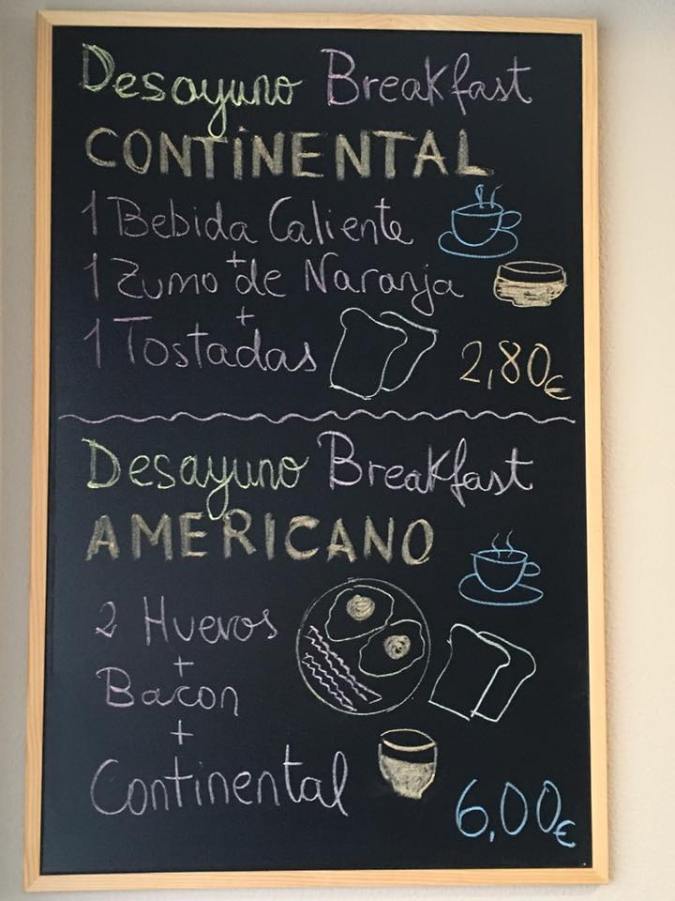 Desayuno Breakfast
CONTINENTAL
1 Bebida Caliente
+
1 Zumo de Naranja
+
1 Tostadas
2,80€
Desayuno Breakfast
AMERICANO
2 Huevos
+
Bacon
+
Continental
6,00€